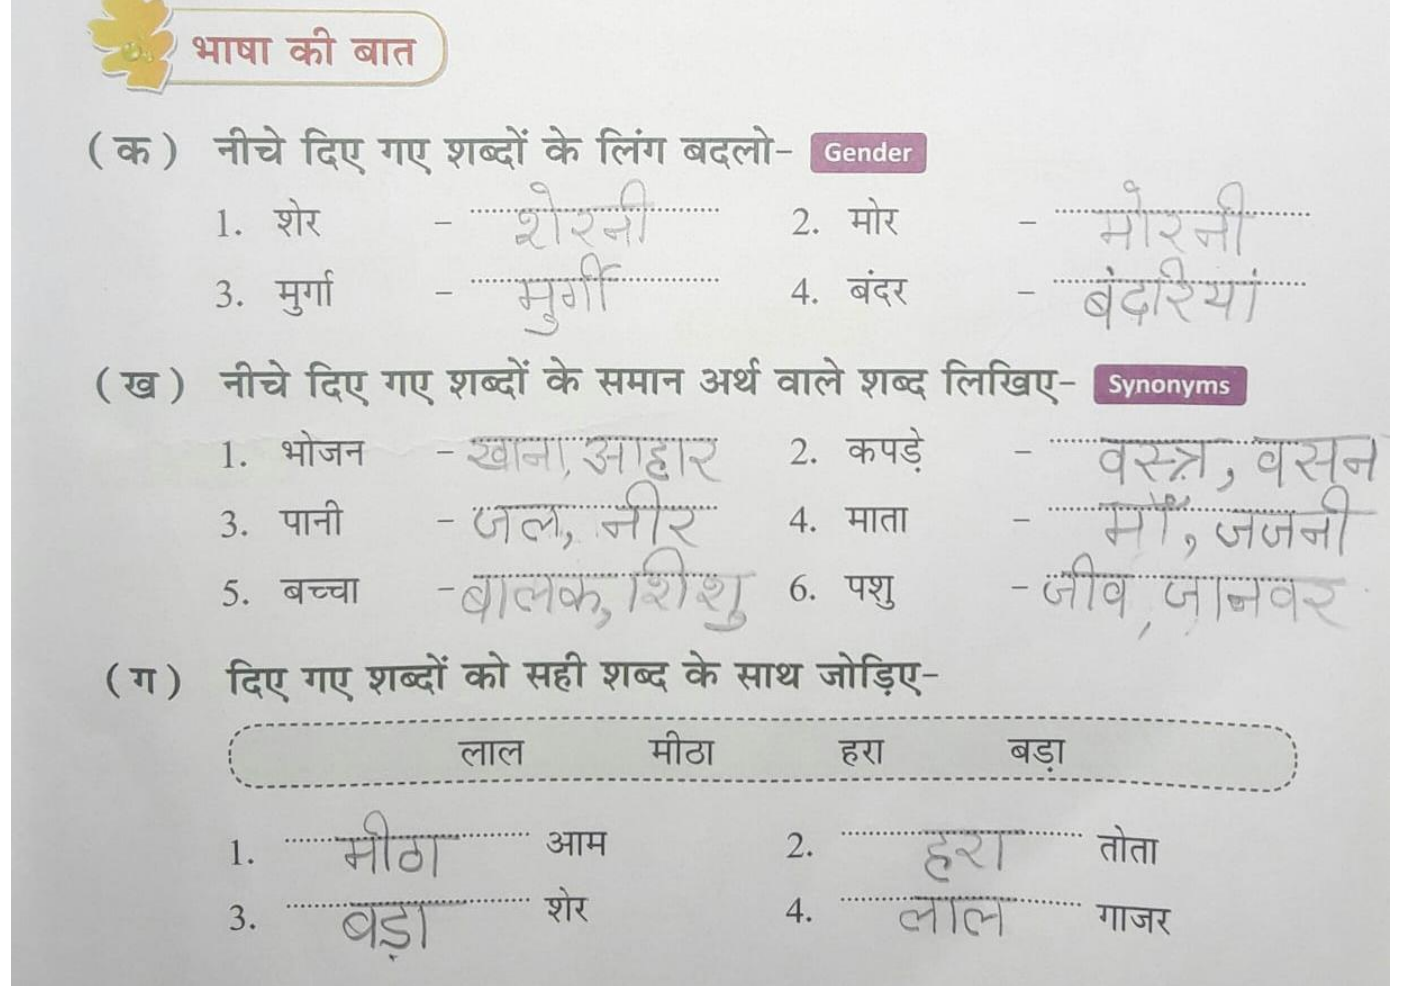 भाषा की बात
(क) नीचे दिए गए शब्दों के लिंग बदलो- Gender
1. शेर - शेरनी 2. मोर - मोरनी
3. मुर्गा - मुर्गी 4. बंदर - बंदरियां
(ख) नीचे दिए गए शब्दों के समान अर्थ वाले शब्द लिखिए- Synonyms
1. भोजन - खाना, आहार 2. कपड़े - वस्त्र, वसन
3. पानी - जल, नीर 4. माता - माँ, जजनी
5. बच्चा - बालक, शिशु 6. पशु - जीव, जानवर
(ग) दिए गए शब्दों को सही शब्द के साथ जोड़िए-
लाल मीठा हरा बड़ा
1. मीठा आम 2. हरा तोता
3. बड़ा शेर 4. लाल गाजर